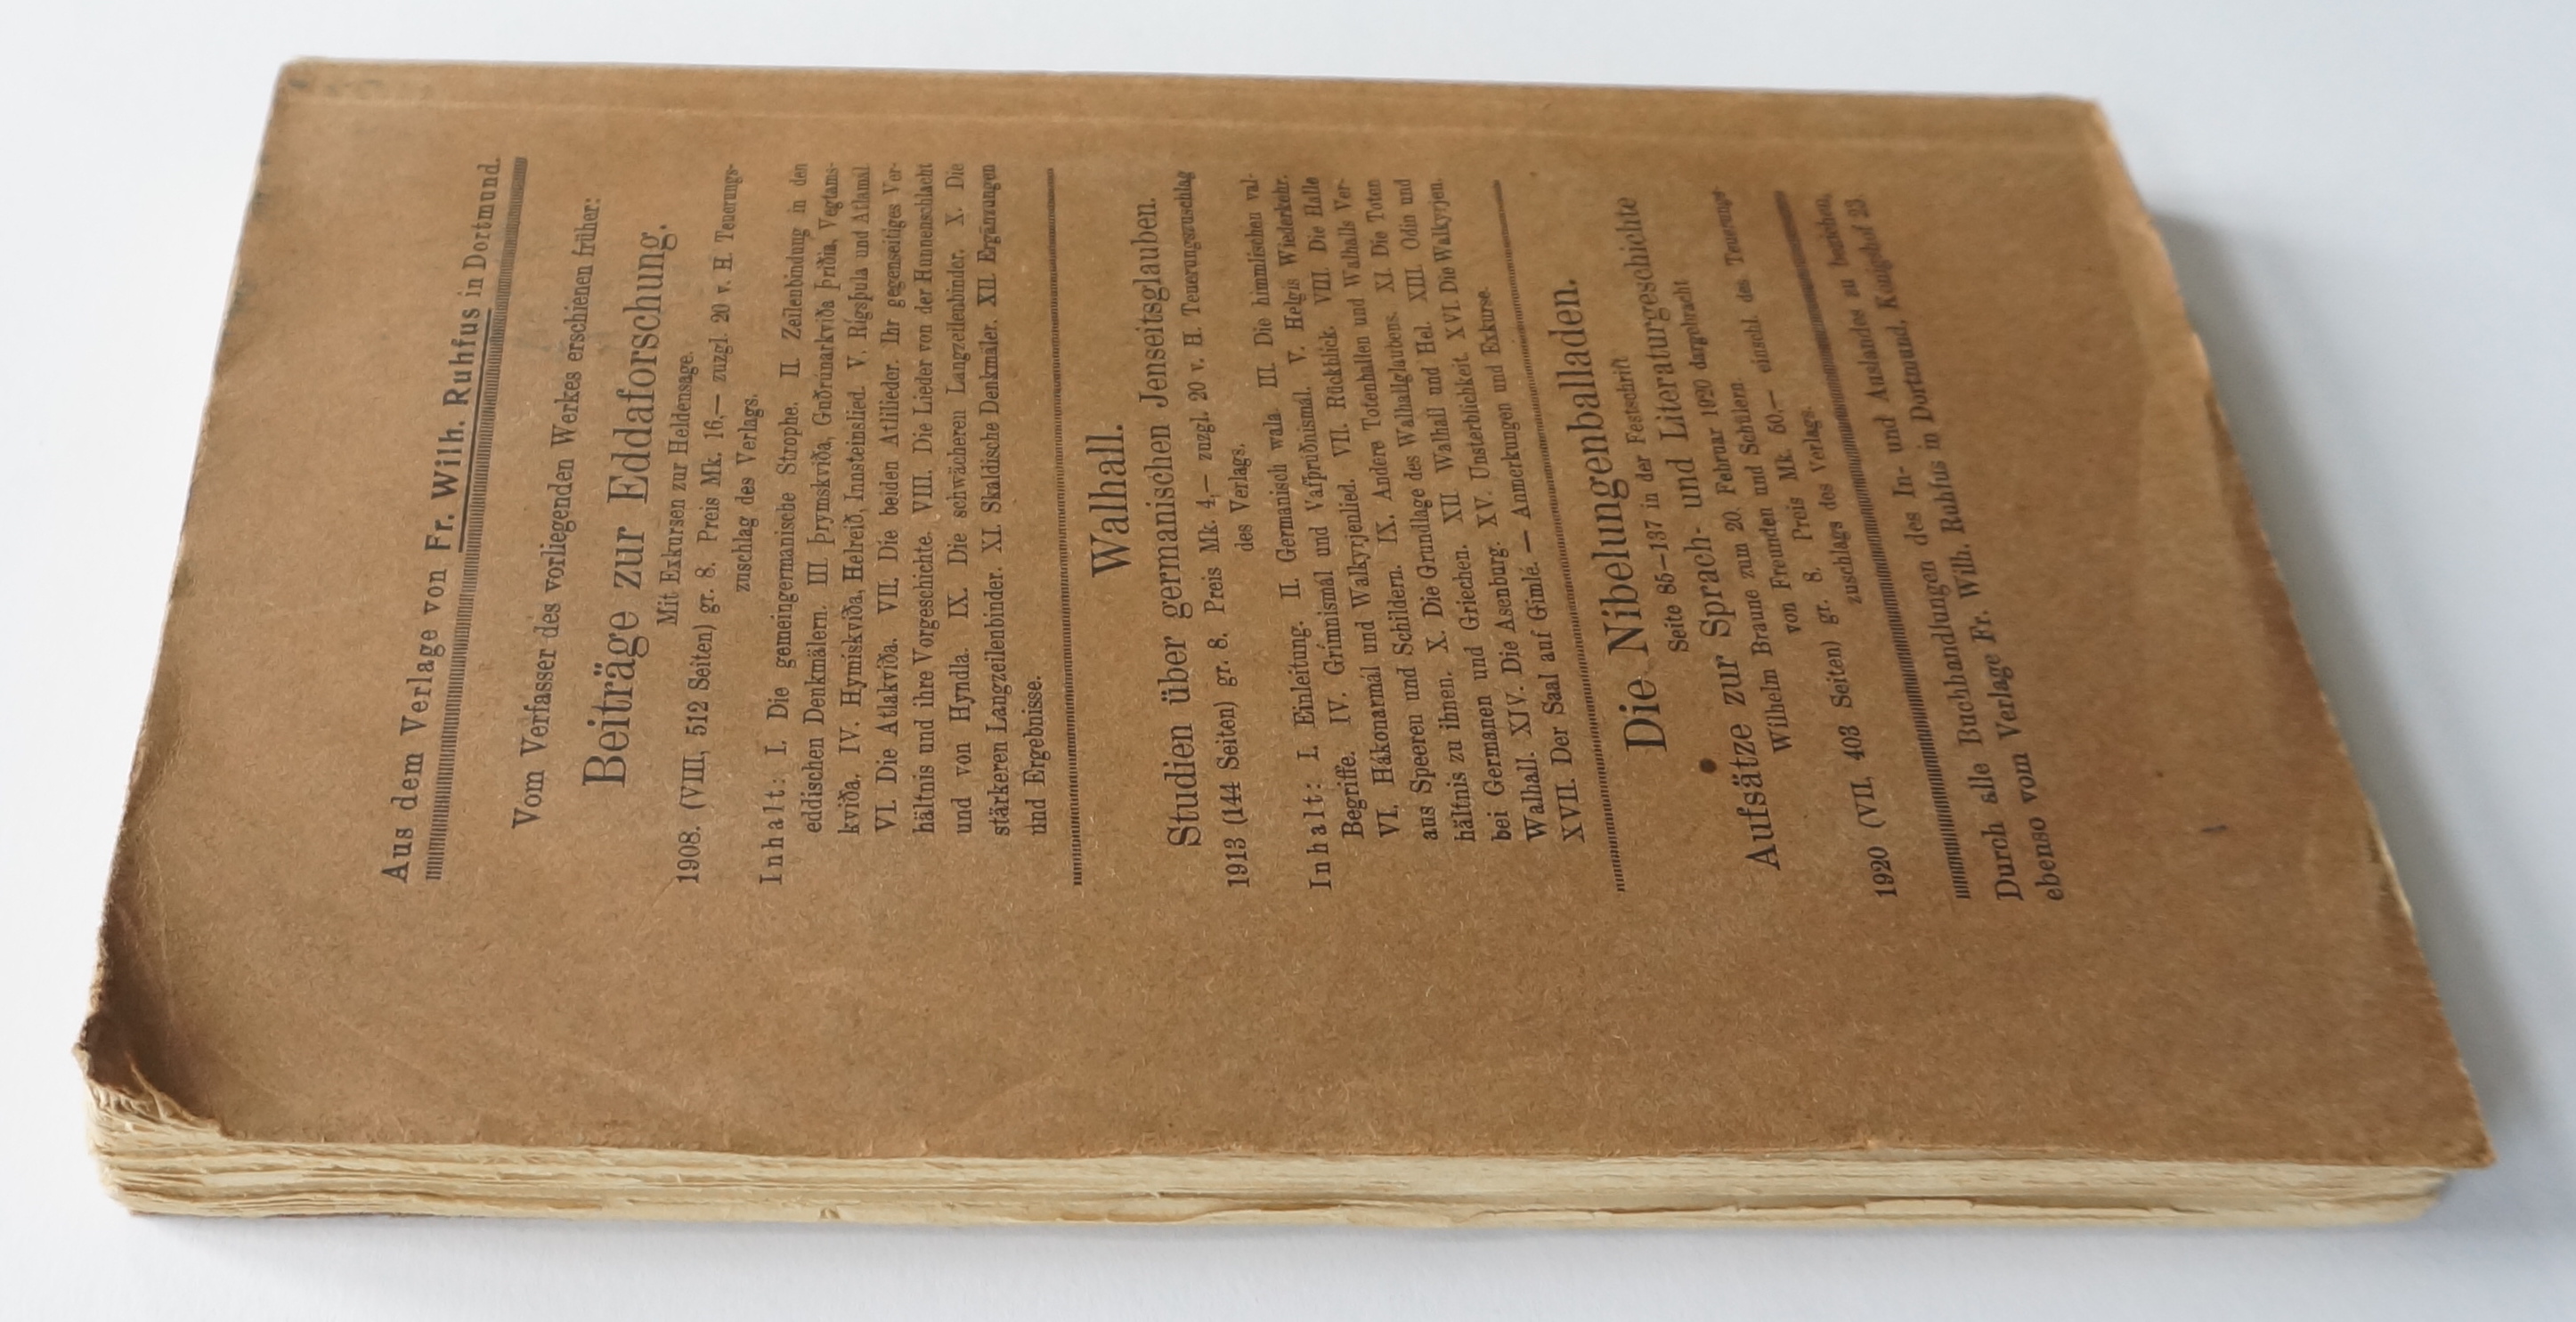 Aus dem Verlage von Fr. Wilh. Ruhfus in Dortmund.
Vom Verfasser des vorliegenden Werkes erschienen früher:
Beiträge zur Eddaforschung.
Mit Exkursen zur Heldensage.
1908. (VIII, 512 Seiten) gr. 8. Preis Mk. 16,— zuzgl. 20 v. H. Teuerungs-
zuschlag des Verlags.
Inhalt: I. Die gemeingermanische Strophe. II. Zeilenbindung in den
eddischen Denkmälern. III. Þrymskviða, Guðrúnarkviða þriðia, Vegtams-
kviða. IV. Hymiskviða, Helreið, Innsteinslied. V. Rígsþula und Atlamál
VI. Die Atlakviða. VII. Die beiden Atlilieder. Ihr gegenseitiges Ver-
hältnis und ihre Vorgeschichte. VIII. Die Lieder von der Hunnenschlacht
und von Hyndla. IX. Die schwächeren Langzeilenbinder. X. Die
stärkeren Langzeilenbinder. XI. Skaldische Denkmäler. XII. Ergänzungen
und Ergebnisse.
Walhall.
Studien über germanischen Jenseitsglauben.
1913 (144 Seiten) gr. 8. Preis Mk. 4,— zuzgl. 20 v. H. Teuerungszuschlag
des Verlags.
Inhalt: I. Einleitung. II. Germanisch wala. III. Die himmlischen val-
Begriffe. IV. Grímnismál und Vafþrúðnismál. V. Helgis Wiederkehr.
VI. Hákonarmál und Walkyrjenlied. VII. Rückblick. VIII. Die Halle
aus Speeren und Schildern. IX. Andere Totenhallen und Walhalls Ver-
hältnis zu ihnen. X. Die Grundlage des Walhallglaubens. XI. Die Toten
bei Germanen und Griechen. XII. Walhall und Hel. XIII. Odin und
Walhall. XIV. Die Asenburg. XV. Unsterblichkeit. XVI. Die Walkyrjen.
XVII. Der Saal auf Gimlé. — Anmerkungen und Exkurse.
Die Nibelungenballaden.
Seite 85—137 in der Festschrift
Aufsätze zur Sprach- und Literaturgeschichte
Wilhelm Braune zum 20. Februar 1920 dargebracht
von Freunden und Schülern.
1920 (VII, 403 Seiten) gr. 8. Preis Mk. 50,— einschl. des Teuerungs-
zuschlags des Verlags.
Durch alle Buchhandlungen des In- und Auslandes zu beziehen,
ebenso vom Verlage Fr. Wilh. Ruhfus in Dortmund, Königshof 23.